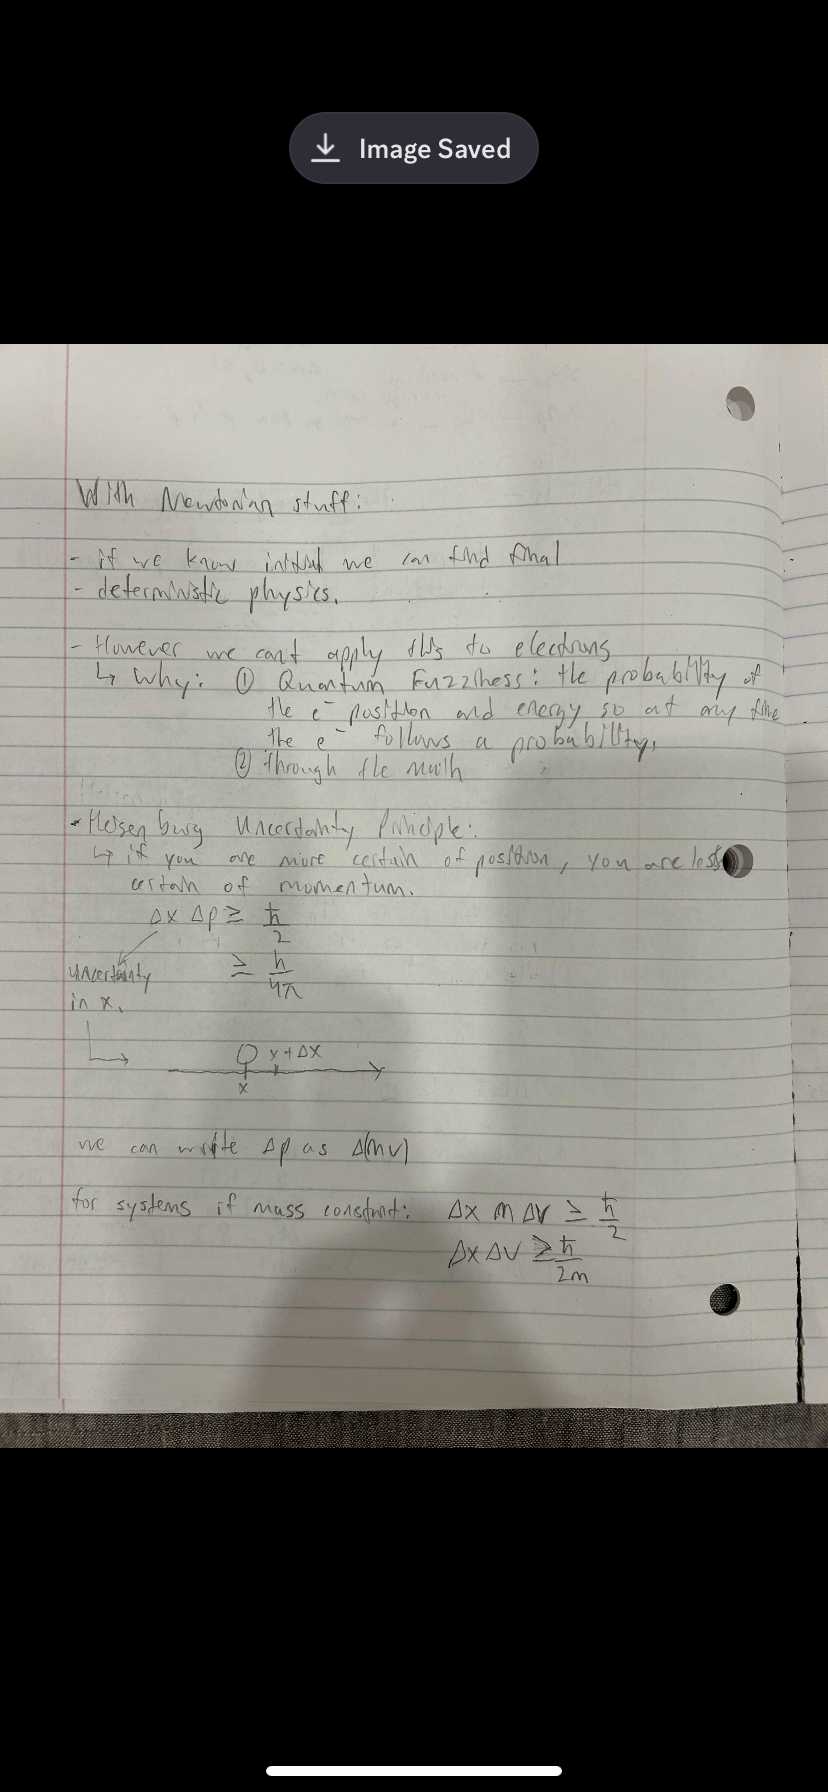 Image Saved
With Newtonian stuff:
- if we know initial we can find final
- deterministic physics.
- However we can't apply this to electrons
↳ Why: ① Quantum Fuzziness: the probability of
the e⁻ position and energy so at any time
the e⁻ follows a probability.
② through the math
- Heisenburg Uncertainty Principle:
↳ if you are more certain of position, you are less
certain of momentum.
Δx Δp ≥ ħ/2
≥ h/4π
uncertainty
in x.
x+Δx
x
we can write Δp as Δ(mv)
for systems if mass constant: Δx m Δv ≥ ħ/2
Δx Δv ≥ ħ/2m